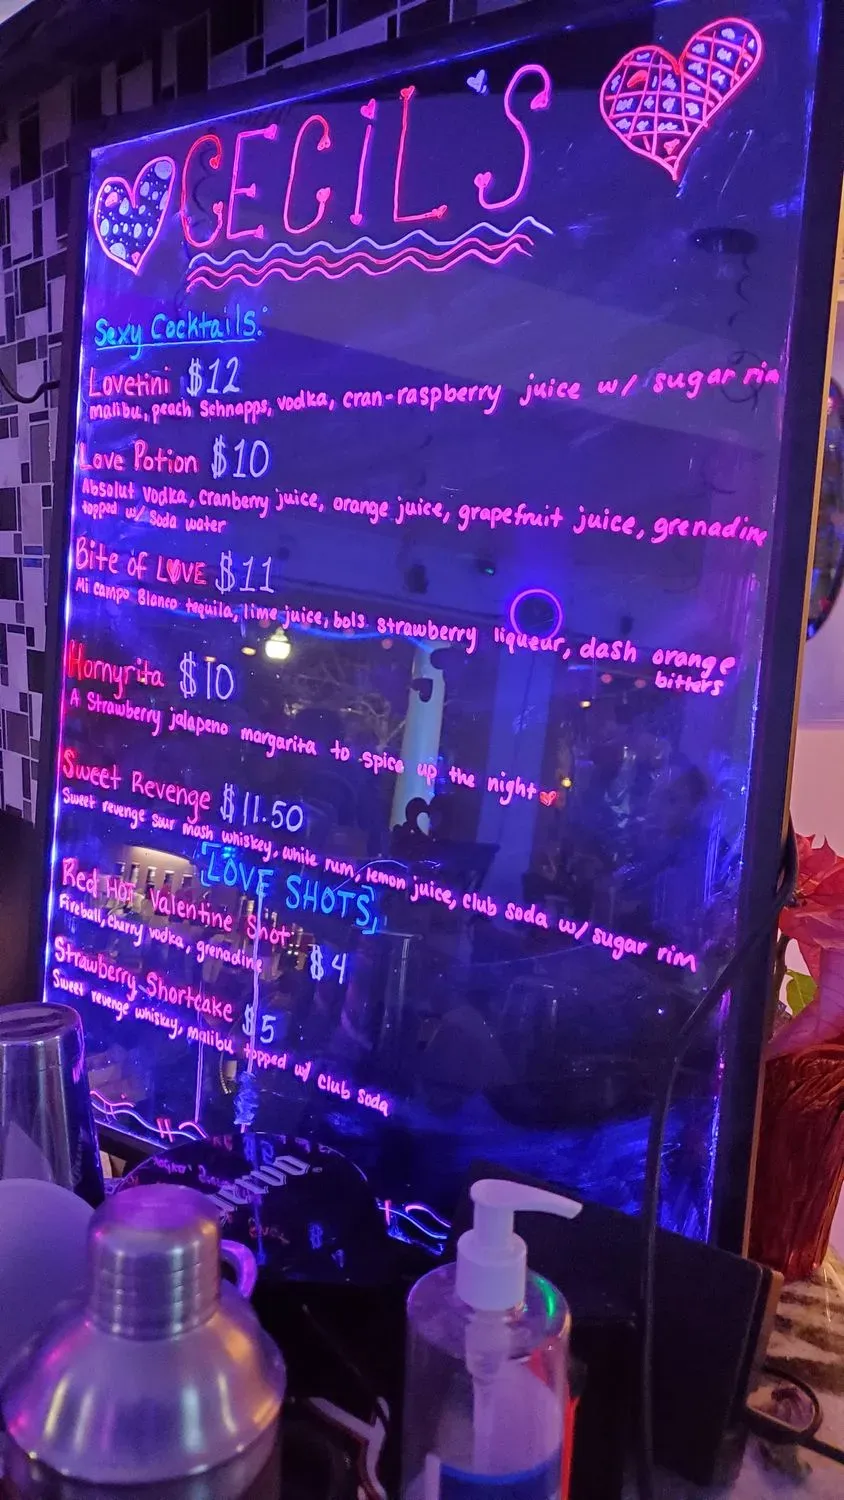 CECIL'S
Sexy Cocktails:
Lovetini $12
malibu, peach Schnapps, vodka, cran-raspberry juice w/ sugar rim
Love Potion $10
Absolut vodka, cranberry juice, orange juice, grapefruit juice, grenadine
topped w/ Soda water
Bite of LOVE $11
Mi campo Blanco tequila, lime juice, bols strawberry liqueur, dash orange
bitters
Hornyrita $10
A Strawberry jalapeno margarita to spice up the night
Sweet Revenge $11.50
Sweet revenge sour mash whiskey, white rum, lemon juice, club soda w/ sugar rim
LOVE SHOTS
Red HOT Valentine Shot $4
Fireball, cherry vodka, grenadine
Strawberry Shortcake $5
Sweet revenge whiskey, malibu topped w/ club soda